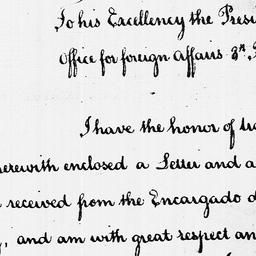 To his Excellency the Presi
Office for foreign Affairs 3d,
I have the honor of tra
herewith enclosed a Letter and a
received from the Encargado d
, and am with great respect an